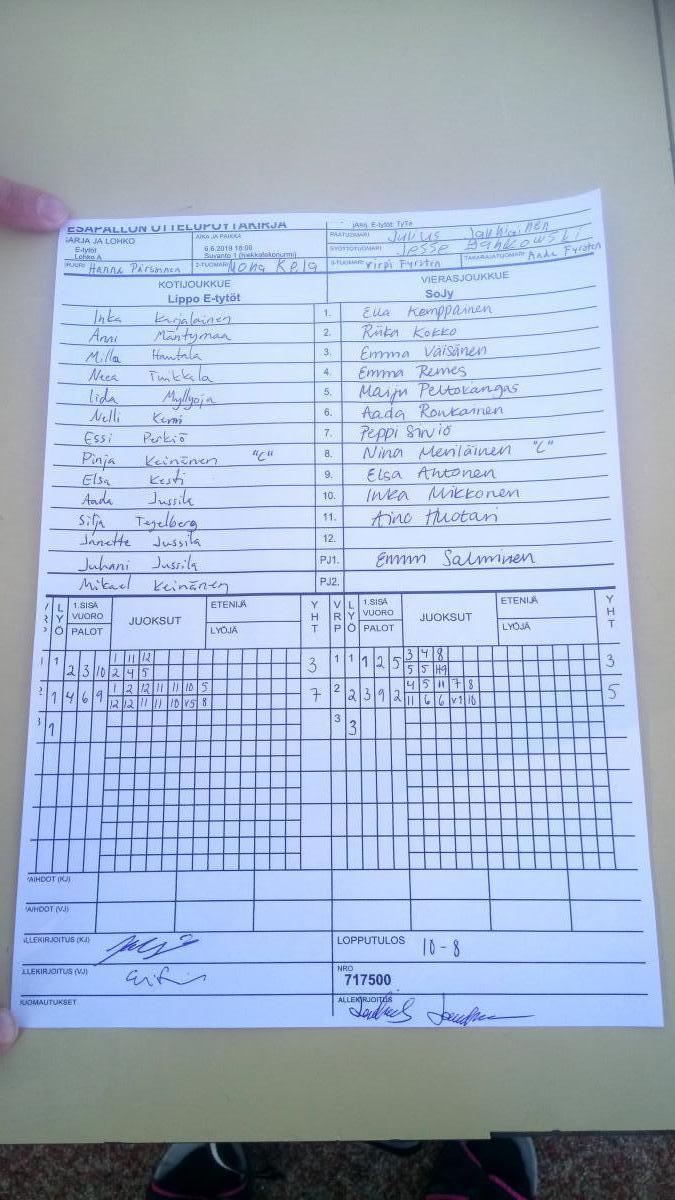 ESÄPALLON OTTELUPÖYTÄKIRJA
SARJA JA LOHKO
E-tytöt
Lohko A
AIKA JA PAIKKA
6.6.2019 18:00
Suvanto 1 (hiekkatekonurmi)
jArj. E-tytöt: TyTe
PÄÄTUOMARI Julius
SYÖTTÖTUOMARI Jesse
2-TUOMARI Mona Kela
3-TUOMARI Virpi Fyrsten
TAKARAJATUOMARI Aada Fyrsten
KOTIJOUKKUE
Lippo E-tytöt
VIERASJOUKKUE
SoJy
Inka Karjalainen 1. Ella Kemppainen
Anni Mäntymaa 2. Riika Kokko
Milla Hautala 3. Emma Väisänen
Neea Tuikkala 4. Emma Remes
Iida Myllyoja 5. Maiju Peltokangas
Nelli Kemi 6. Aada Ronkainen
Essi Perkiö 7. Peppi Sirviö
Pinja Keinänen "C" 8. Nina Meriläinen "C"
Elsa Kesti 9. Elsa Ahtonen
Aada Jussila 10. Inka Mikkonen
Silja Tegelberg 11. Aino Huotari
Janette Jussila 12.
Juhani Jussila PJ1. Emmi Salminen
Mikael Keinänen PJ2.
LYÖ 1.SISÄ VUORO PALOT JUOKSUT ETENIJÄ LYÖJÄ YHT
VRP LYÖ 1.SISÄ VUORO PALOT JUOKSUT ETENIJÄ LYÖJÄ YHT
1 1 2 3 10 1 11 12 3 1 1 1 2 5 3 4 8 3
2 4 5 5 5 H9
2 1 4 6 9 1 2 12 11 11 10 5 7 2 2 3 9 2 4 5 11 7 8 5
12 12 11 11 10 V5 8 11 6 6 V1 10
3 1 3 3
VAIHDOT (KJ)
VAIHDOT (VJ)
ALLEKIRJOITUS (KJ)
LOPPUTULOS 10-8
ALLEKIRJOITUS (VJ)
NRO
717500
HUOMAUTUKSET
ALLEKIRJOITUS